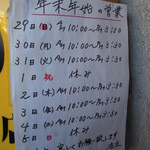 年末年始の営業
29日(日) AM10:00〜PM5:30
30日(月) AM10:00〜PM5:30
31日(火) AM10:00〜PM5:30
1日(祝) 休み
2日(木) AM10:00〜PM5:30
3日(金) AM10:00〜PM5:30
4日(土) AM10:00〜PM5:30
5日(日) 休み
店